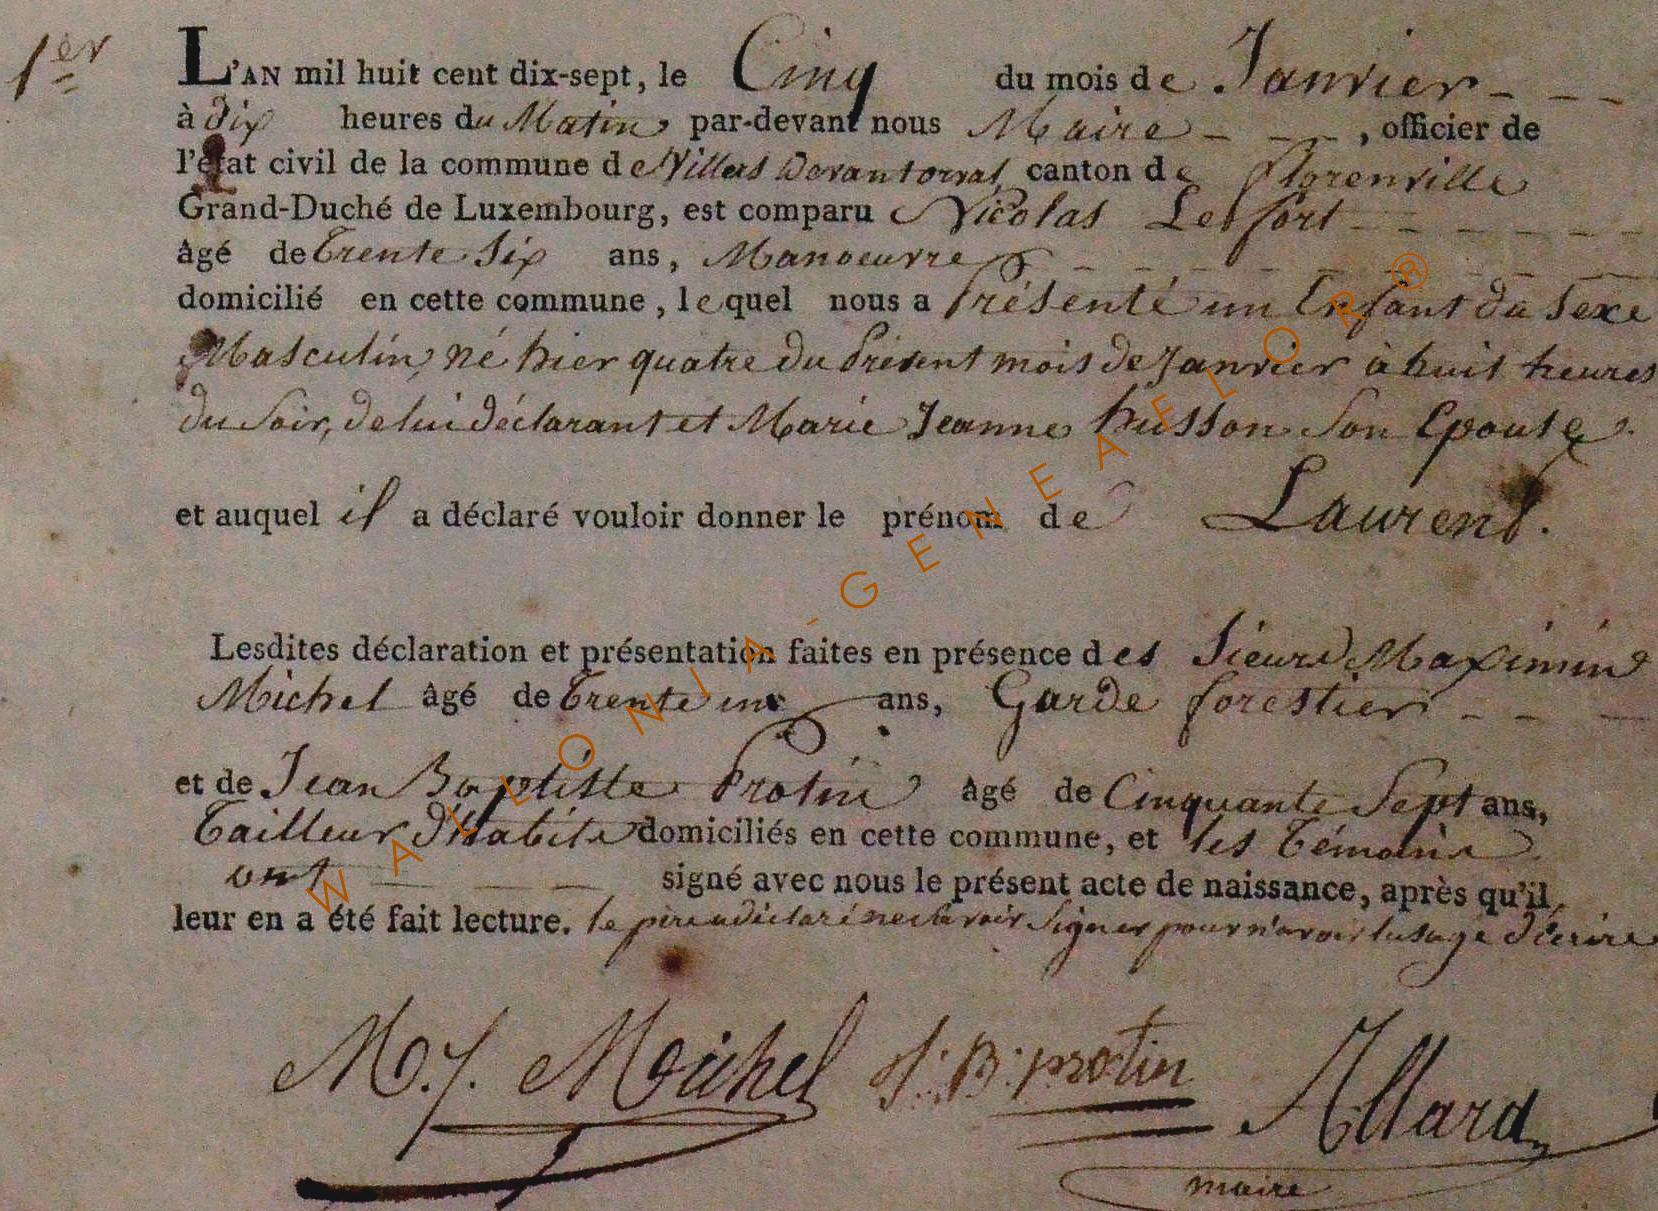 1er
L'AN mil huit cent dix-sept, le Cinq du mois de Janvier
à dix heures du Matin par-devant nous Maire, officier de
l'état civil de la commune de Villers Devantorval, canton de Florenville
Grand-Duché de Luxembourg, est comparu Nicolas Lefort
âgé de trente Six ans, Manoeuvre
domicilié en cette commune, lequel nous a Présenté un Enfant du Sexe
Masculin, né hier quatre du Présent mois de Janvier à huit heures
du Soir, de lui déclarant et Marie Jeanne husson Son Epouse.
et auquel il a déclaré vouloir donner le prénom de Laurent.
Lesdites déclaration et présentation faites en présence des Sieurs Maximin
Michel âgé de trente un ans, Garde forestier
et de Jean Baptiste Protin âgé de Cinquante Sept ans,
Tailleur d'habits domiciliés en cette commune, et les Témoins
ont signé avec nous le présent acte de naissance, après qu'il
leur en a été fait lecture. le père a déclaré ne savoir signer pour n'avoir lusage d'écrire
M. J. Michel J. B. protin Allard
maire
WALLONIA-GENEAFLOR®